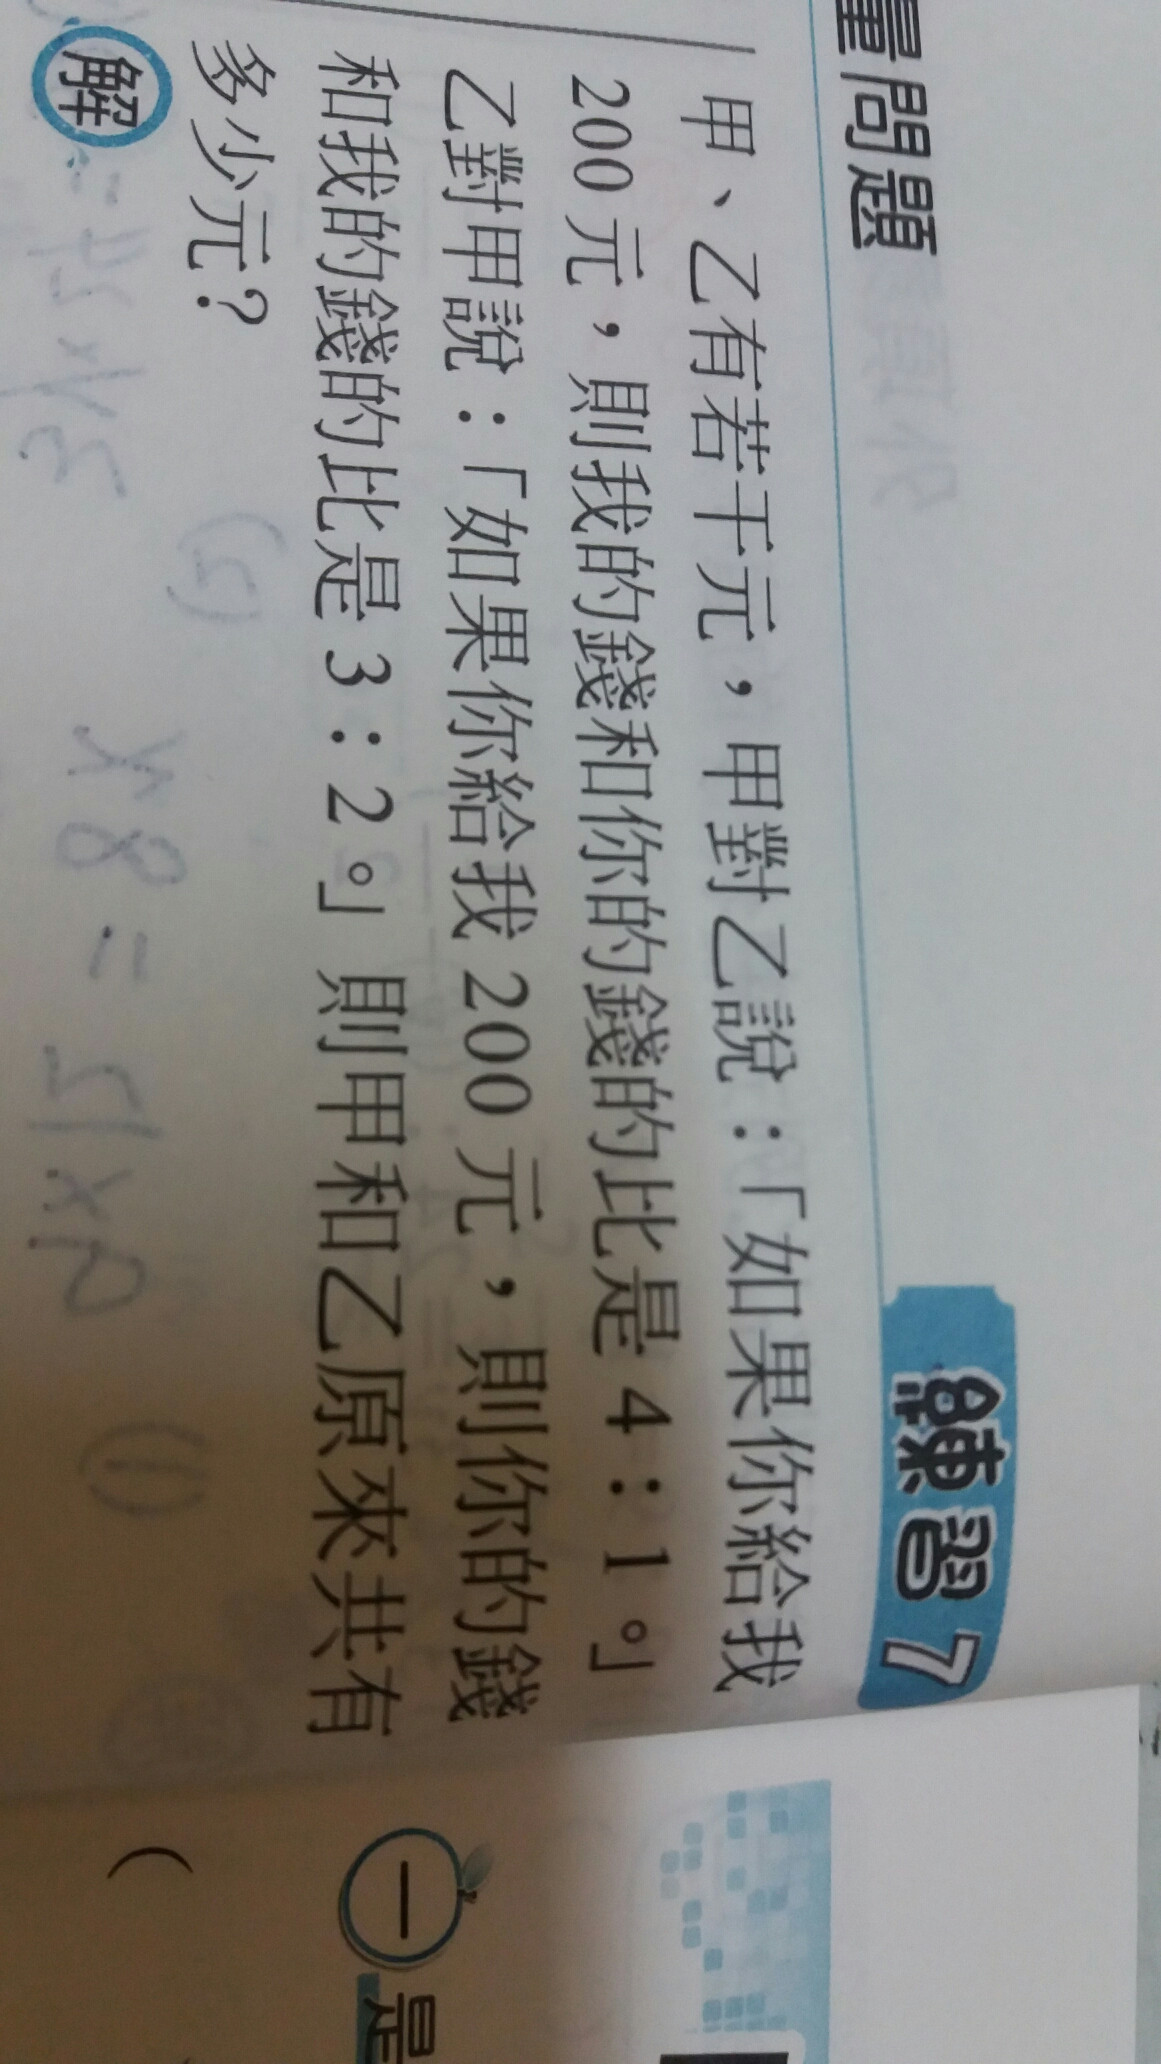 量問題
練習 7
甲、乙有若干元，甲對乙說：「如果你給我
200 元，則我的錢和你的錢的比是 4：1。」
乙對甲說：「如果你給我 200 元，則你的錢
和我的錢的比是 3：2。」則甲和乙原來共有
多少元？
解
一 是
(